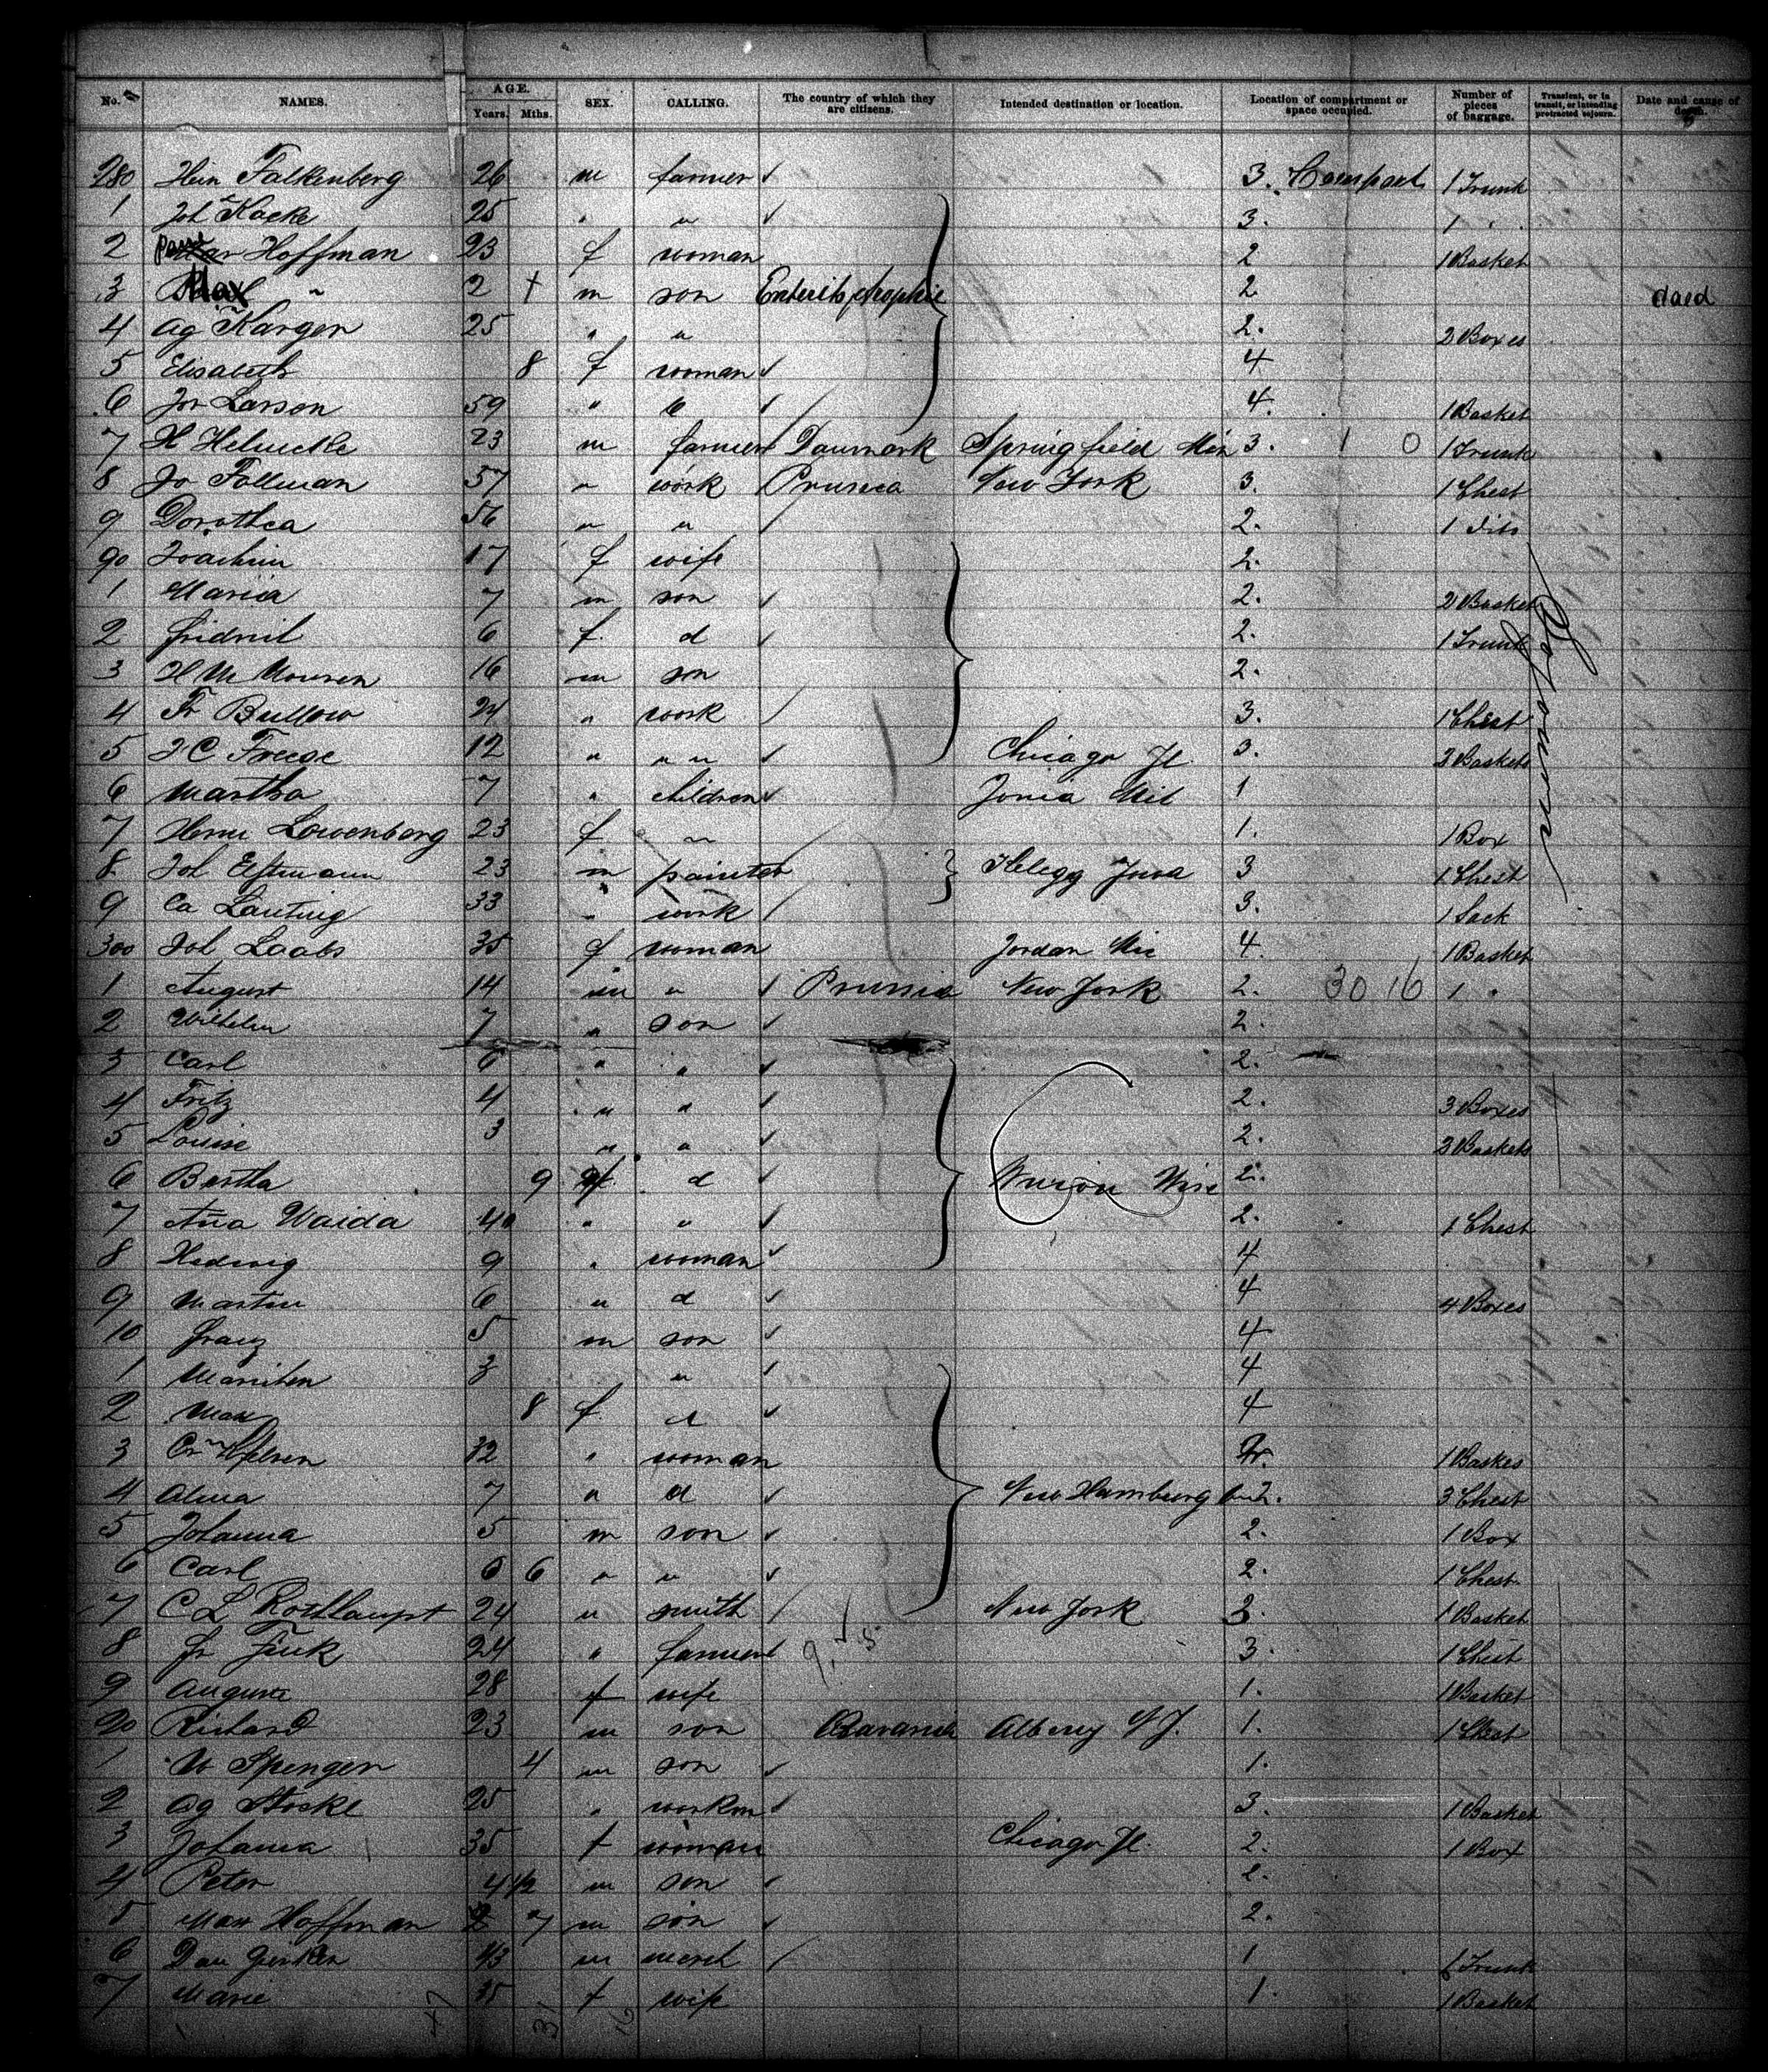 No. NAMES. AGE. Years. Mths. SEX. CALLING. The country of which they are citizens. Intended destination or location. Location of compartment or space occupied. Number of pieces of baggage. Transient, or in transit, or intending protracted sojourn. Date and cause of death.
280 Hein Falkenberg 26 m farmer 3. Compart 1 Trunk
1 Joh Kacke 25 " " 3. 1 "
2 Hoffman 23 f woman 2 1 Basket
3 Max " 2 m son 2 daed
4 Ag Karger 25 " " 2. 2 Boxes
5 Elisabeth 8 f woman 4
6 Jor Larson 59 " 4. 1 Basket
7 H Helmcke 23 m farmer Danmark Springfield Min 3. 1 0 1 Trunk
8 Jo Follman 57 " work Prussia New York 3. 1 Chest
9 Dorothea 56 " " 2. 1 dito
90 Joachim 17 f wife 2.
1 Maria 7 m son 2. 2 Basket
2 6 f. d 2. 1 Trunk
3 H M 16 m son 2.
4 Fr Bullow 24 " work 3. 1 Chest
5 J C Freese 12 " " " Chicago Jl. 3. 3 Baskets
6 Martha 7 " children Jonia Mil 1
7 Herm Lowenberg 23 f " 1. 1 Box
8 Joh Elstmann 23 m painter Kelegg Jowa 3 1 Chest
9 Ca Lauting 33 " work 3. 1 Sack
300 Joh Laabs 35 f woman Jordan 4. 1 Basket
1 August 14 m " Prussia New York 2. 30 16 1 "
2 Wilhelm 7 " son 2.
3 Carl 6 " " 2.
4 Fritz 4 " " 2. 3 Boxes
5 Louise 3 " " 2. 3 Baskets
6 Bertha 9 f. d 2.
7 Ana Waida 40 " " 2. 1 Chest
8 Hedwig 9 " woman 4
9 Martin 6 " d 4 4 Boxes
10 Franz 5 m son 4
1 3 " 4
2 Max 8 f. d 4
3 32 " woman 1 Baskes
4 Alma 7 " d New Hamburg 2. 3 Chest
5 Johanna 5 m son 2. 1 Box
6 Carl 0 6 " " 2. 1 Chest
7 C L Rosthaupt 24 " smith New York 3. 1 Basket
8 Fr Finck 24 " farmer 3. 1 Chest
9 Augusta 28 f wife 1. 1 Basket
20 Richard 23 m son Bavaria Albeny N J. 1. 1 Chest
1 W Spenger 4 m son 1.
2 Ag Stoske 25 " workm 3. 1 Basket
3 Johanna 35 f woman Chicago Jl. 2. 1 Box
4 Peter 4 1/2 m son 2.
5 Max Hoffman 2 m son 2.
6 Dan 43 m merch 1 1 Trunk
7 Marie 35 f wife 1. 1 Basket